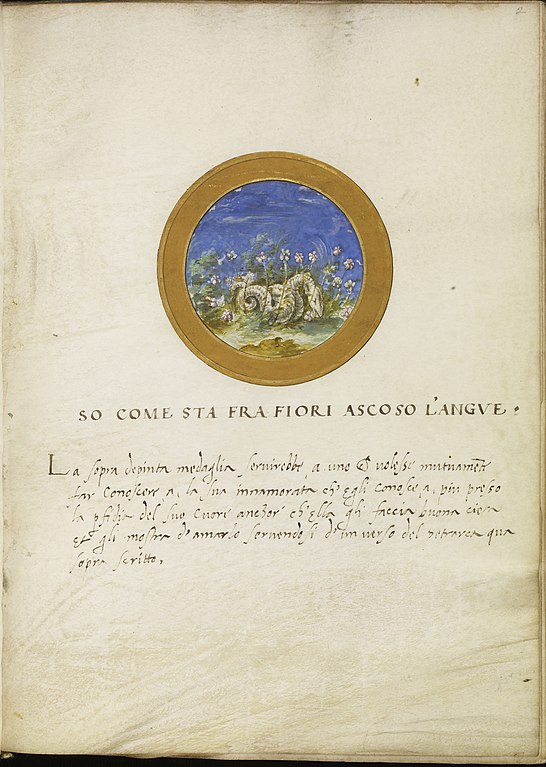 2
SO COME STA FRA FIORI ASCOSO L'ANGVE.
La sopra depinta medaglia servirebbe a uno volesse mutuamẽte
far conoscere a, la sua innamorata ch' egli conosce a, piu
la pfidia del suo cuore anchor ch' ella gli faccia buona ciera
et gli mostra d' amarlo servendosi d' un verso del petrarca qua
sopra scritto,